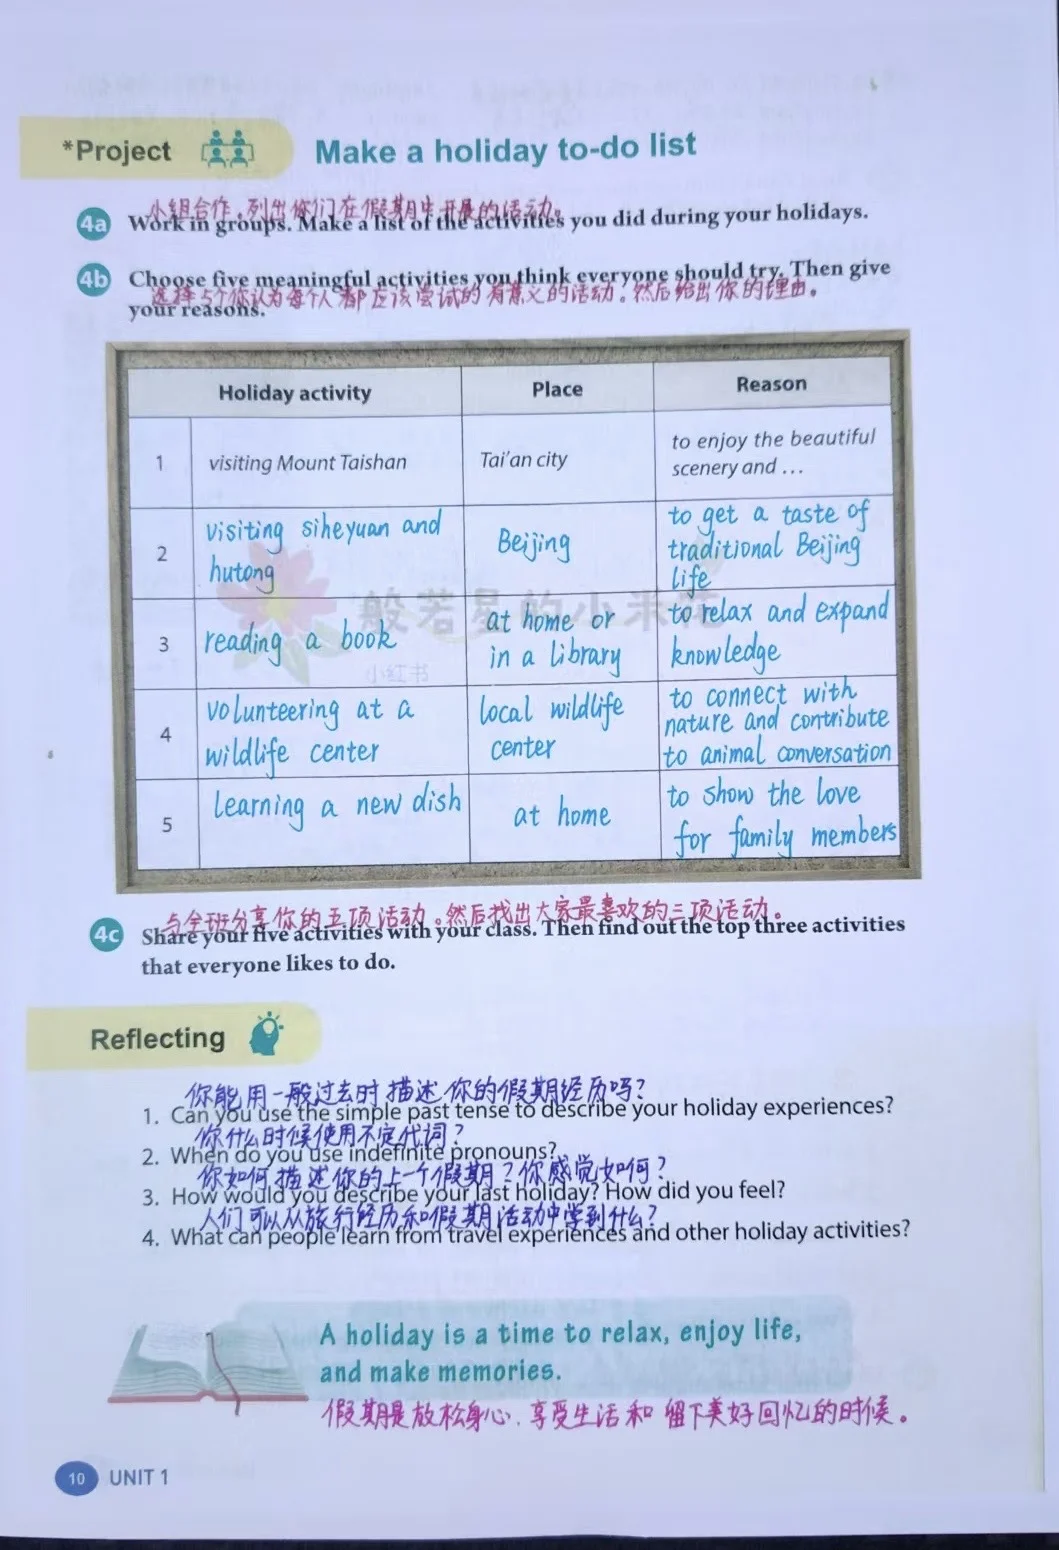 *Project
Make a holiday to-do list
小组合作,列出你们在假期中开展的活动。
4a Work in groups. Make a list of the activities you did during your holidays.
4b Choose five meaningful activities you think everyone should try. Then give
选择5个你认为每个人都应该尝试的有意义的活动。然后给出你的理由。
your reasons.
Holiday activity Place Reason
1 visiting Mount Taishan Tai'an city to enjoy the beautiful
scenery and ...
2 visiting siheyuan and
hutong
Beijing
to get a taste of
traditional Beijing
life
般若星的小米花
小红书
3 reading a book
at home or
in a library
to relax and expand
knowledge
4 volunteering at a
wildlife center
local wildlife
center
to connect with
nature and contribute
to animal conversation
5 learning a new dish
at home
to show the love
for family members
与全班分享你的五项活动。然后找出大家最喜欢的三项活动。
4c Share your five activities with your class. Then find out the top three activities
that everyone likes to do.
Reflecting
你能用一般过去时描述你的假期经历吗?
1. Can you use the simple past tense to describe your holiday experiences?
你什么时候使用不定代词?
2. When do you use indefinite pronouns?
你如何描述你的上一个假期?你感觉如何?
3. How would you describe your last holiday? How did you feel?
人们可以从旅行经历和假期活动中学到什么?
4. What can people learn from travel experiences and other holiday activities?
A holiday is a time to relax, enjoy life,
and make memories.
假期是放松身心、享受生活和留下美好回忆的时候。
10 UNIT 1